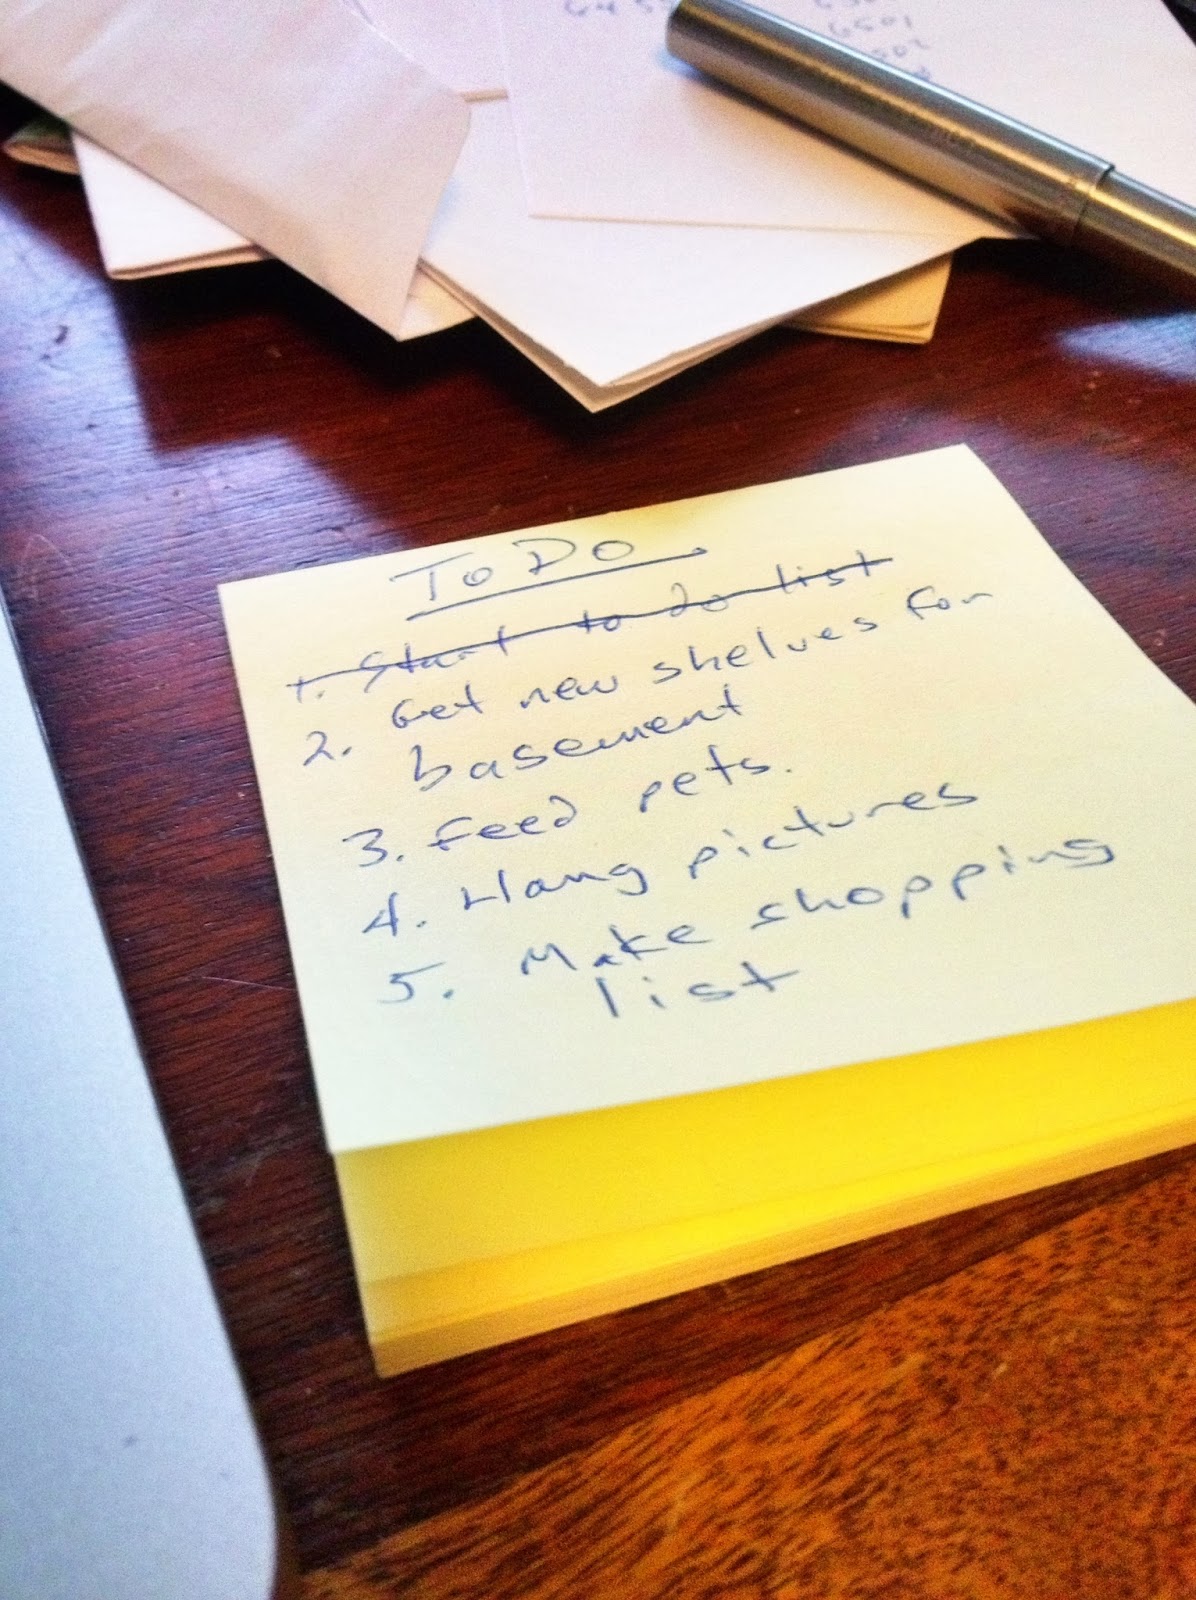 6501
To Do
1. Start to do list
2. Get new shelves for
basement
3. Feed pets.
4. Hang pictures
5. Make shopping
list